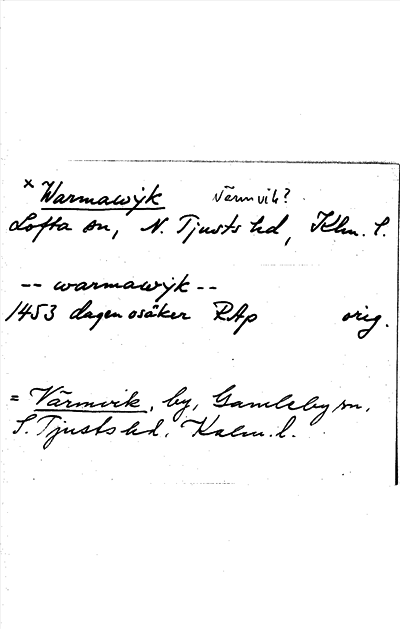 × Warmawijk Värmvik?
Lofta sn, N. Tjusts hd, Klm. l.
-- warmawyk --
1453 dagen osäker RAp orig.
= Värmvik, by, Gamleby sn,
S. Tjusts hd. Kalm. l.